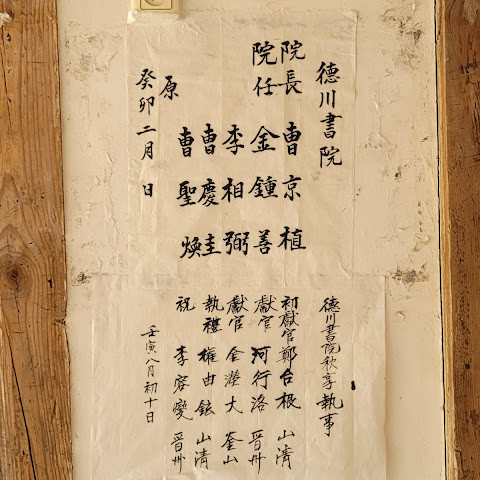 德川書院
院長 曺京植
院任 金鍾善
李相弼
曺慶圭
曺聖煥
原
癸卯二月 日
德川書院秋享執事
初獻官 鄭台根 山淸
獻官 河行洛 晋州
獻官 全瀅大 釜山
執禮 權由鉉 山淸
祝 李容燮 晋州
壬寅八月初十日